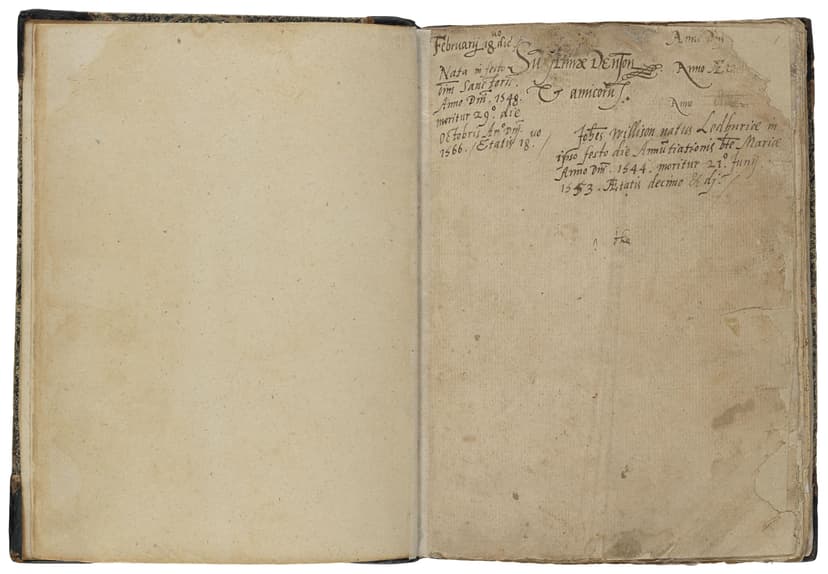 February 18 uo die
Nata in festo
Sanctoru.
Anno Dni. 1548.
moritur 29.º die
Octobris Anº Dni.
1566. Etatis 18. uo
Sum Denton
& amicoru.
Anno Dni
Anno Æta
Anno
Johēs Willison natus Lodburiæ in
ipso festo die Annūtiationis btē Mariæ
Anno Dni. 1544. moritur 21.º Junij
1553. Ætatis decimo & dj.
the